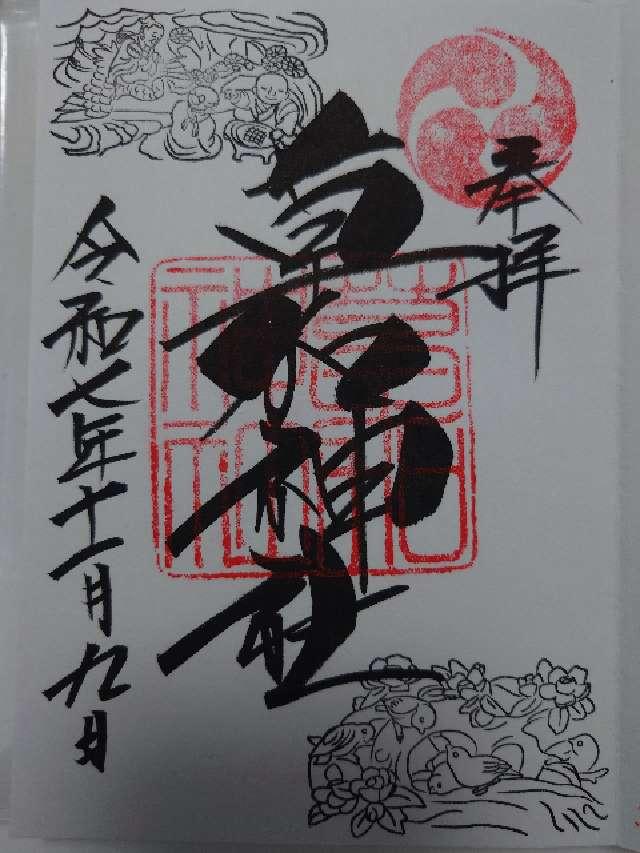 奉拝
草加神社
令和七年十一月九日